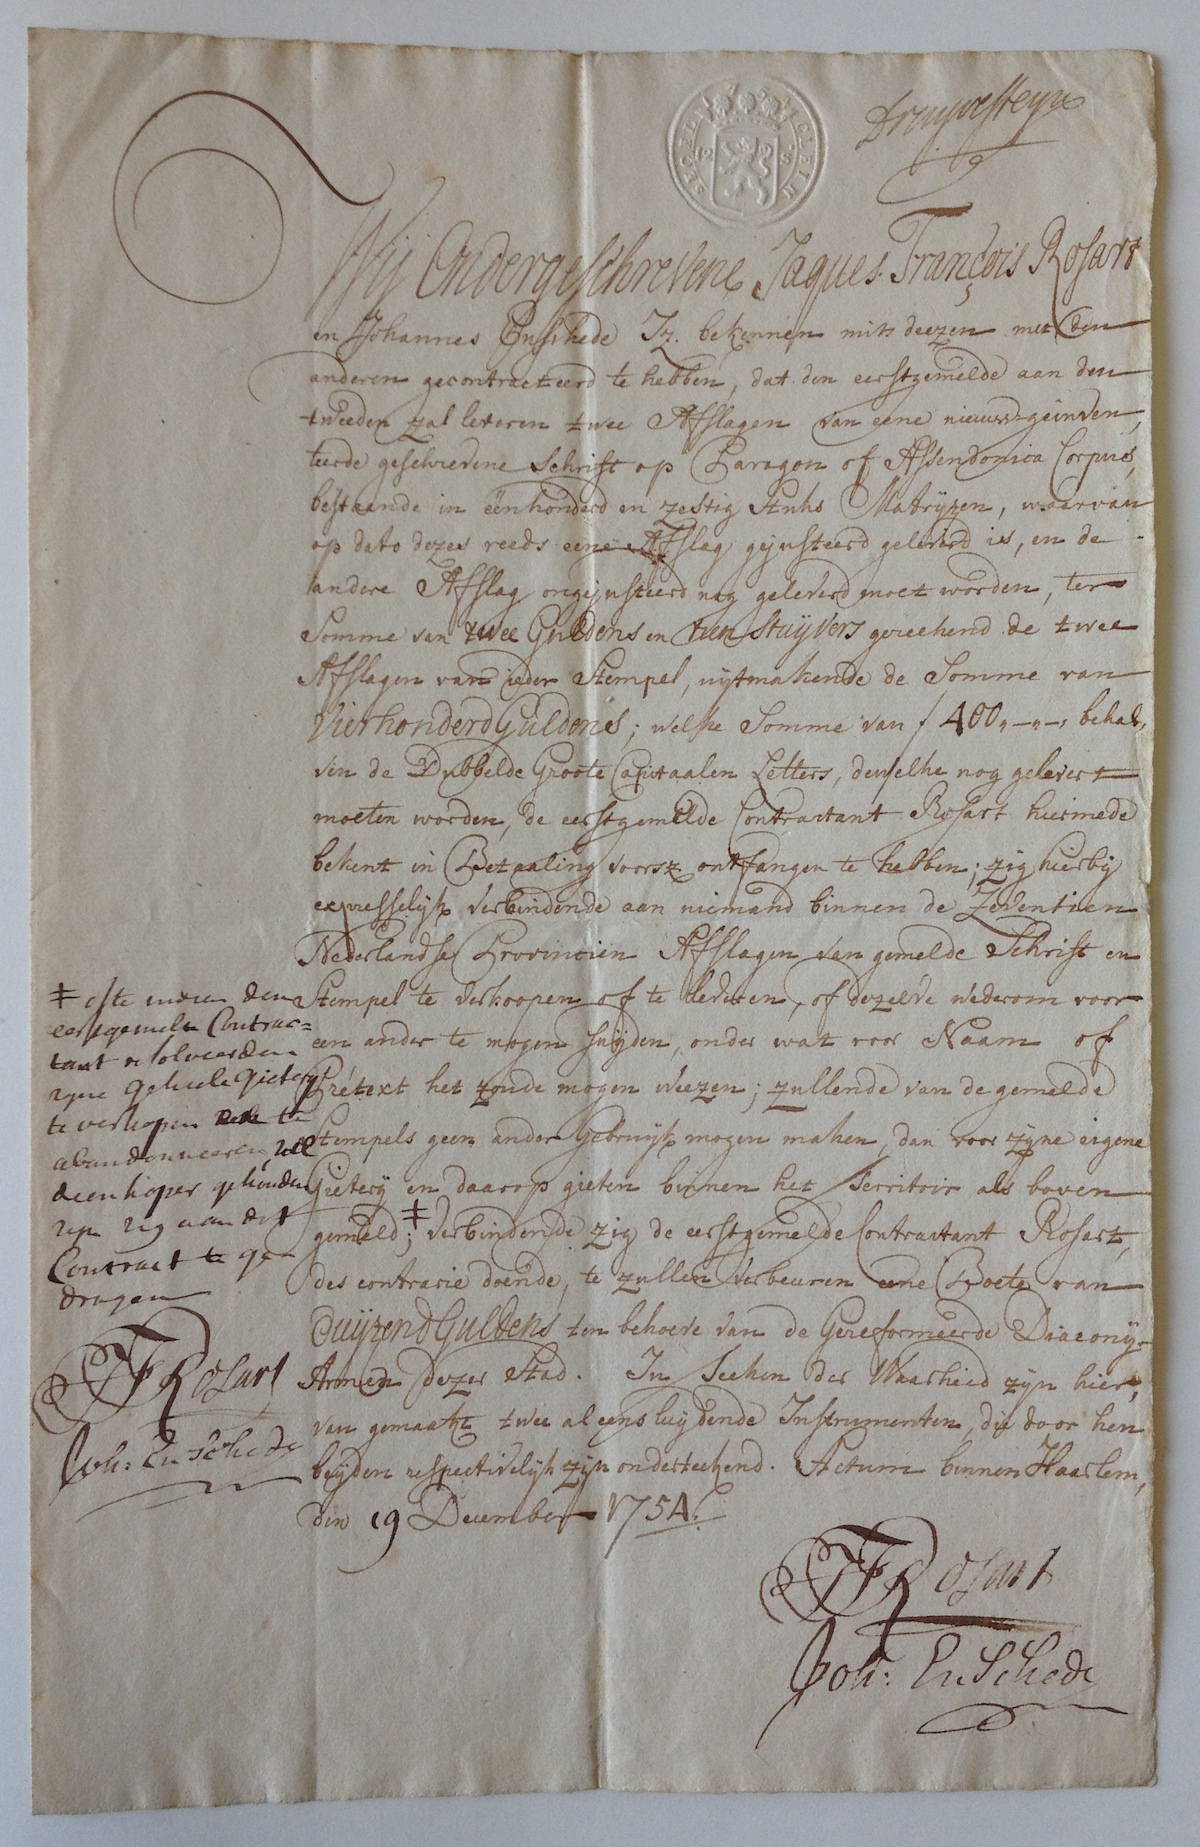 Druyvesteyn
SEGEL KLEIN
Wij Ondergeschrevene, Jaques François Rosart
en Johannes Enschede Iz. bekennen mits deezen met den
anderen gecontracteerd te hebben, dat den eerstgemelde aan den
tweeden zal leveren twee Afslagen van eene nieuw-geinven,
teerde geschrevene Schrift op Paragon of Assendonica Corpus,
bestaande in eenhonderd en zestig Stuks Matryzen, waarvan
op dato dezes reeds eene Afslag gejusteerd geleverd is, en de
andere Afslag ongejusteerd nog geleverd moet worden, ter
Somme van twee Guldens en tien Stuyvers gereekend de twee
Afslagen van ieder Stempel, uytmakende de Somme van
Vierhonderd Guldens; welke Somme van f 400„-„-, behal,
ven de Dubbelde Groote Capitaalen Letters, dewelke nog gelevert
moeten worden, de eerstgemelde Contractant Rosart hiermede
bekent in Betaaling voorsz ontfangen te hebben; zig hierbij
expresselyk verbindende aan niemand binnen de Zeventien
Nederlandse Provincien Afslagen van gemelde Schrift en
Stempel te verkoopen of te leveren, of dezelve wederom voor
een ander te mogen snyden, onder wat voor Naam of
Prétext het zoude mogen weezen; zullende van de gemelde
Stempels geen ander Gebruyk mogen maken, dan voor zyne eigene
Gietery en daarop gieten binnen het Territoir als boven
gemeld; ‡ Verbindende zig de eerstgemelde Contractant Rosart,
des contrarie doende, te zullen verbeuren eene Boete van
Duyzend Guldens ten behoeve van de Gereformeerde Diacony-
Armen dezer Stad. In Teeken der Waarheid zyn hier,
van gemaakt twee aleensluydende Instrumenten, die door hen
beyden respectivelyk zyn onderteekend. Actum binnen Haarlem,
den 19 December 1754.
‡ ofte indien den
eerstgemelte Contrac=
tant resolveerden
zyne geheele gietery
te verkopen te
abandonneeren, zal
den koper gehouden
zyn zig aan dit
Contract te ge
dragen
JF Rosart
Joh: Enschede
JF Rosart
Joh: Enschede